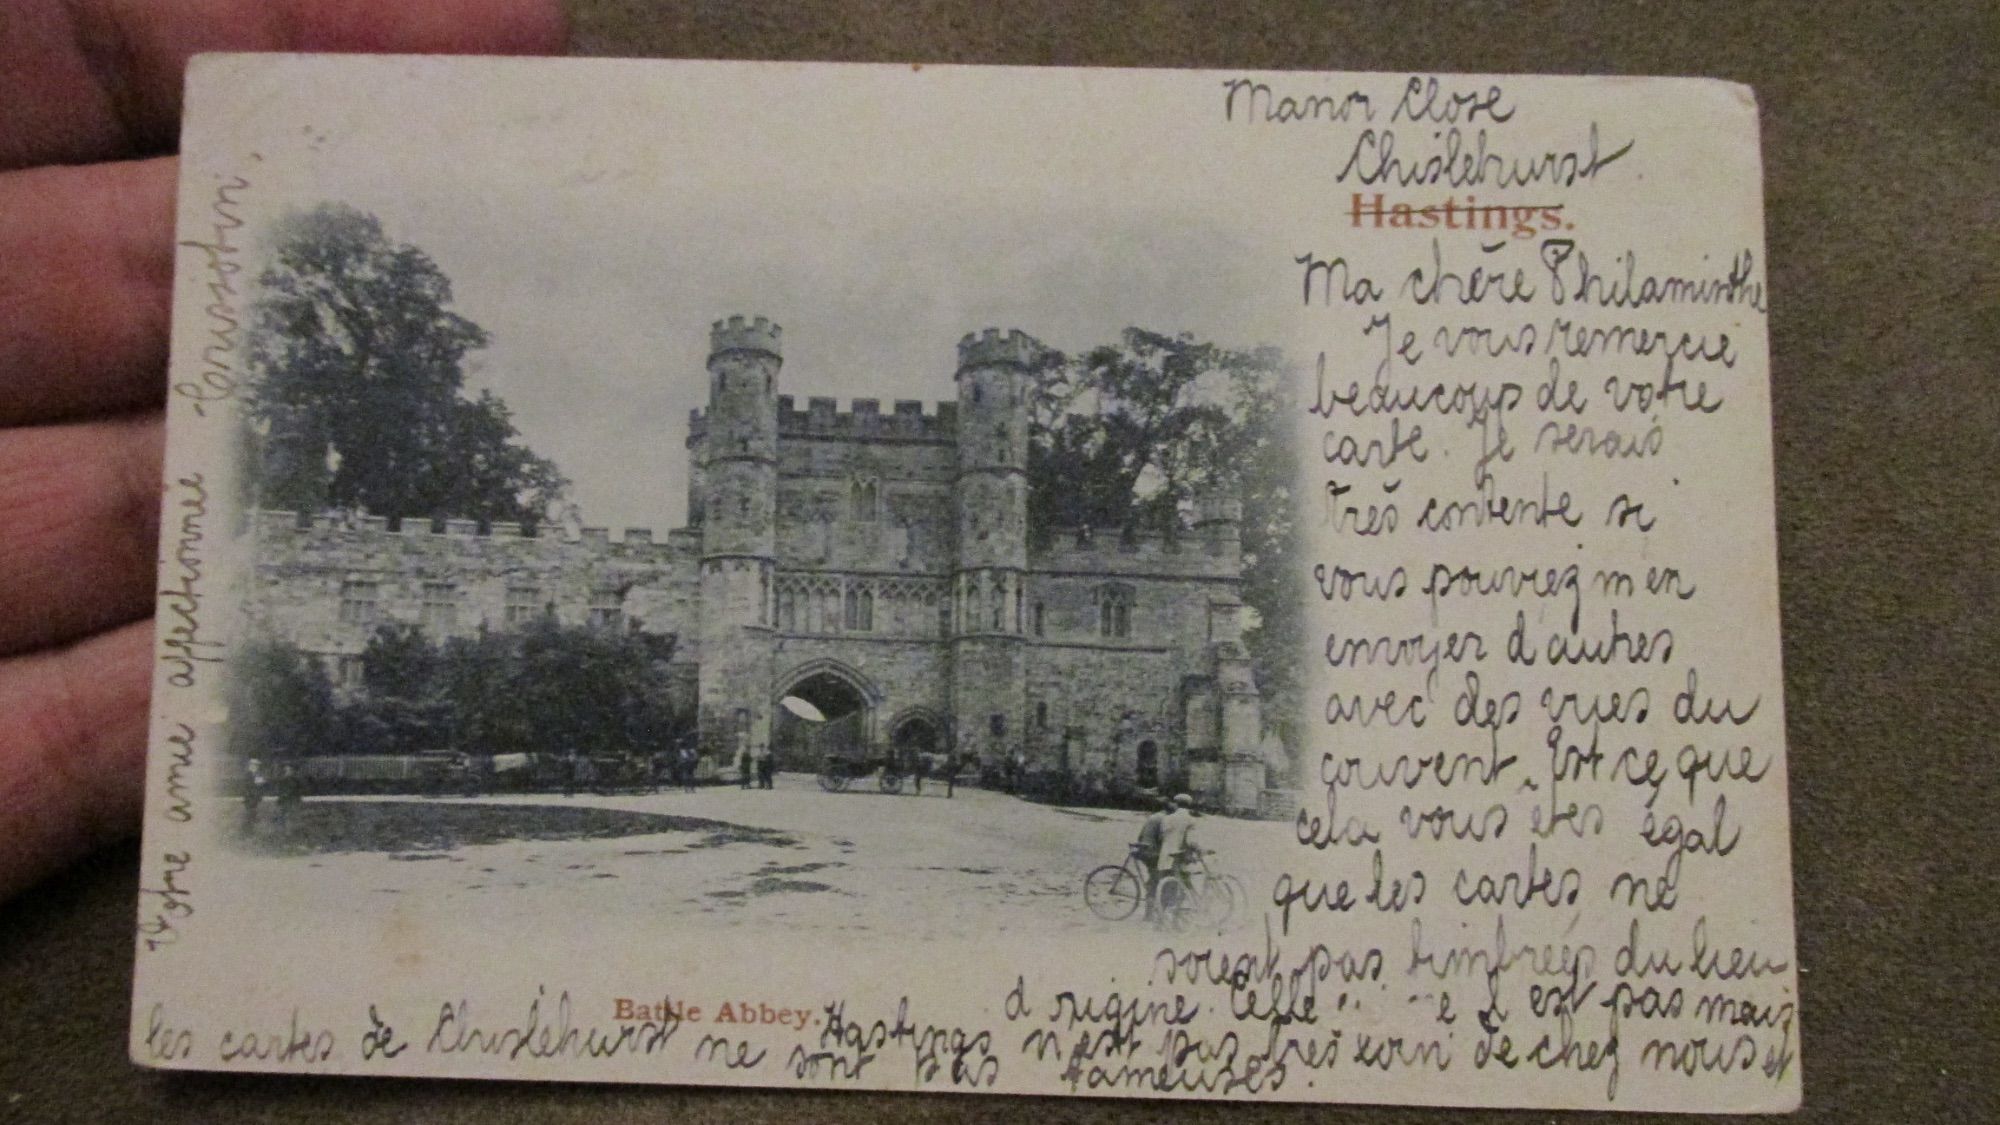 Manor Close
Chislehurst.
Hastings.
Ma chère Philaminthe
Je vous remercie
beaucoup de votre
carte. Je serais
très contente si
vous pouviez m'en
envoyer d'autres
avec des vues du
couvent. Est ce que
cela vous êtes égal
que les cartes ne
soient pas timbrées du lieu
d'origine. Celle e l'est pas mais
Battle Abbey.
Hastings n'est pas très loin de chez nous et
les cartes de Chislehurst ne sont pas fameuses.
Votre amie affectionnée